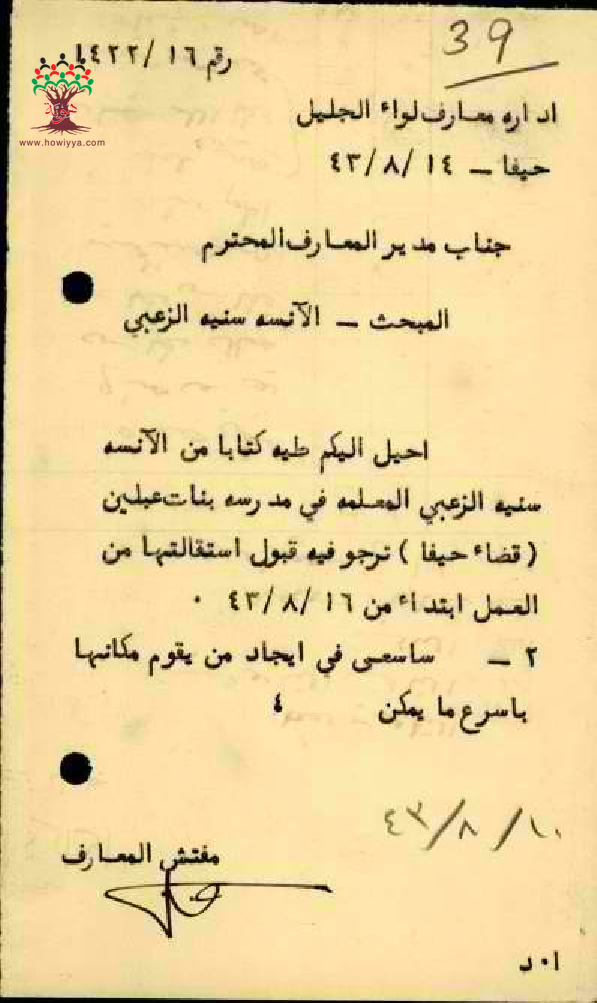 39
رقم ١٦/ ١٤٢٢
www.howiyya.com
اداره معارف لواء الجليل
حيفا – ٤٣/٨/١٤
جناب مدير المعارف المحترم
المبحث – الآنسه سنيه الزعبي
احيل اليكم طيه كتابا من الآنسه
سنيه الزعبي المعلمه في مدرسه بنات عبلين
( قضاء حيفا ) ترجو فيه قبول استقالتها من
العمل ابتداء من ٤٣/٨/١٦ ٠
٢ – ساسعى في ايجاد من يقوم مكانها
باسرع ما يمكن ٤
٤٣/٨/١٠
مفتش المعارف
ا٠ د